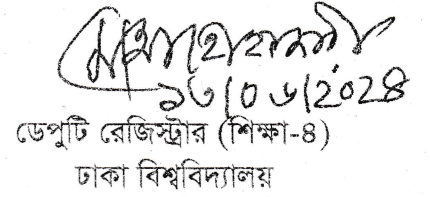 ১৩/০৬/২০২৪
ডেপুটি রেজিস্ট্রার (শিক্ষা-৪)
ঢাকা বিশ্ববিদ্যালয়